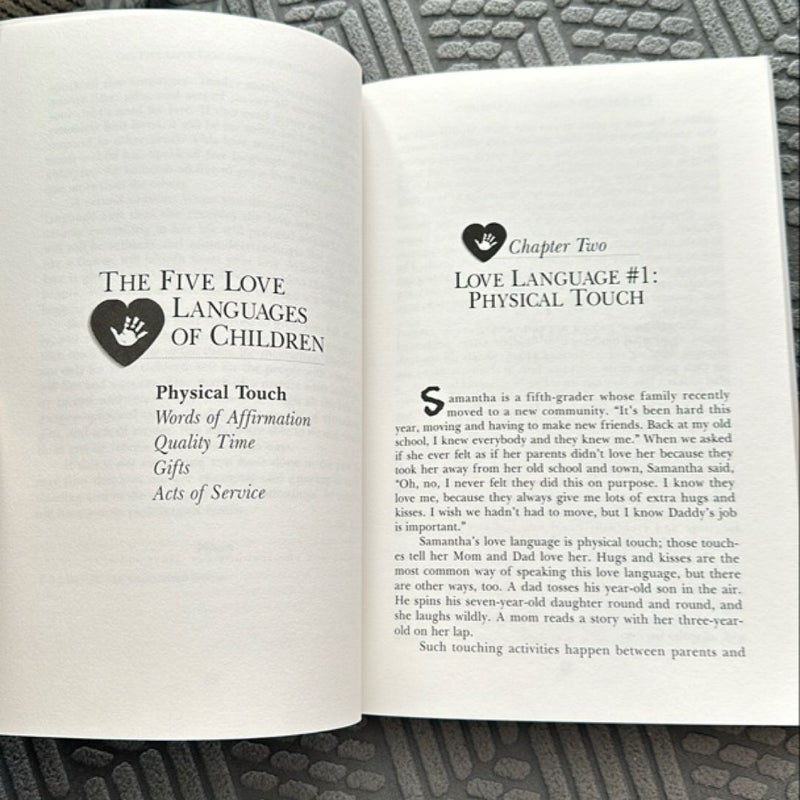 THE FIVE LOVE
LANGUAGES
OF CHILDREN
Physical Touch
Words of Affirmation
Quality Time
Gifts
Acts of Service
Chapter Two
LOVE LANGUAGE #1:
PHYSICAL TOUCH
Samantha is a fifth-grader whose family recently
moved to a new community. “It’s been hard this
year, moving and having to make new friends. Back at my old
school, I knew everybody and they knew me.” When we asked
if she ever felt as if her parents didn’t love her because they
took her away from her old school and town, Samantha said,
“Oh, no, I never felt they did this on purpose. I know they
love me, because they always give me lots of extra hugs and
kisses. I wish we hadn’t had to move, but I know Daddy’s job
is important.”
Samantha’s love language is physical touch; those touch-
es tell her Mom and Dad love her. Hugs and kisses are the
most common way of speaking this love language, but there
are other ways, too. A dad tosses his year-old son in the air.
He spins his seven-year-old daughter round and round, and
she laughs wildly. A mom reads a story with her three-year-
old on her lap.
Such touching activities happen between parents and